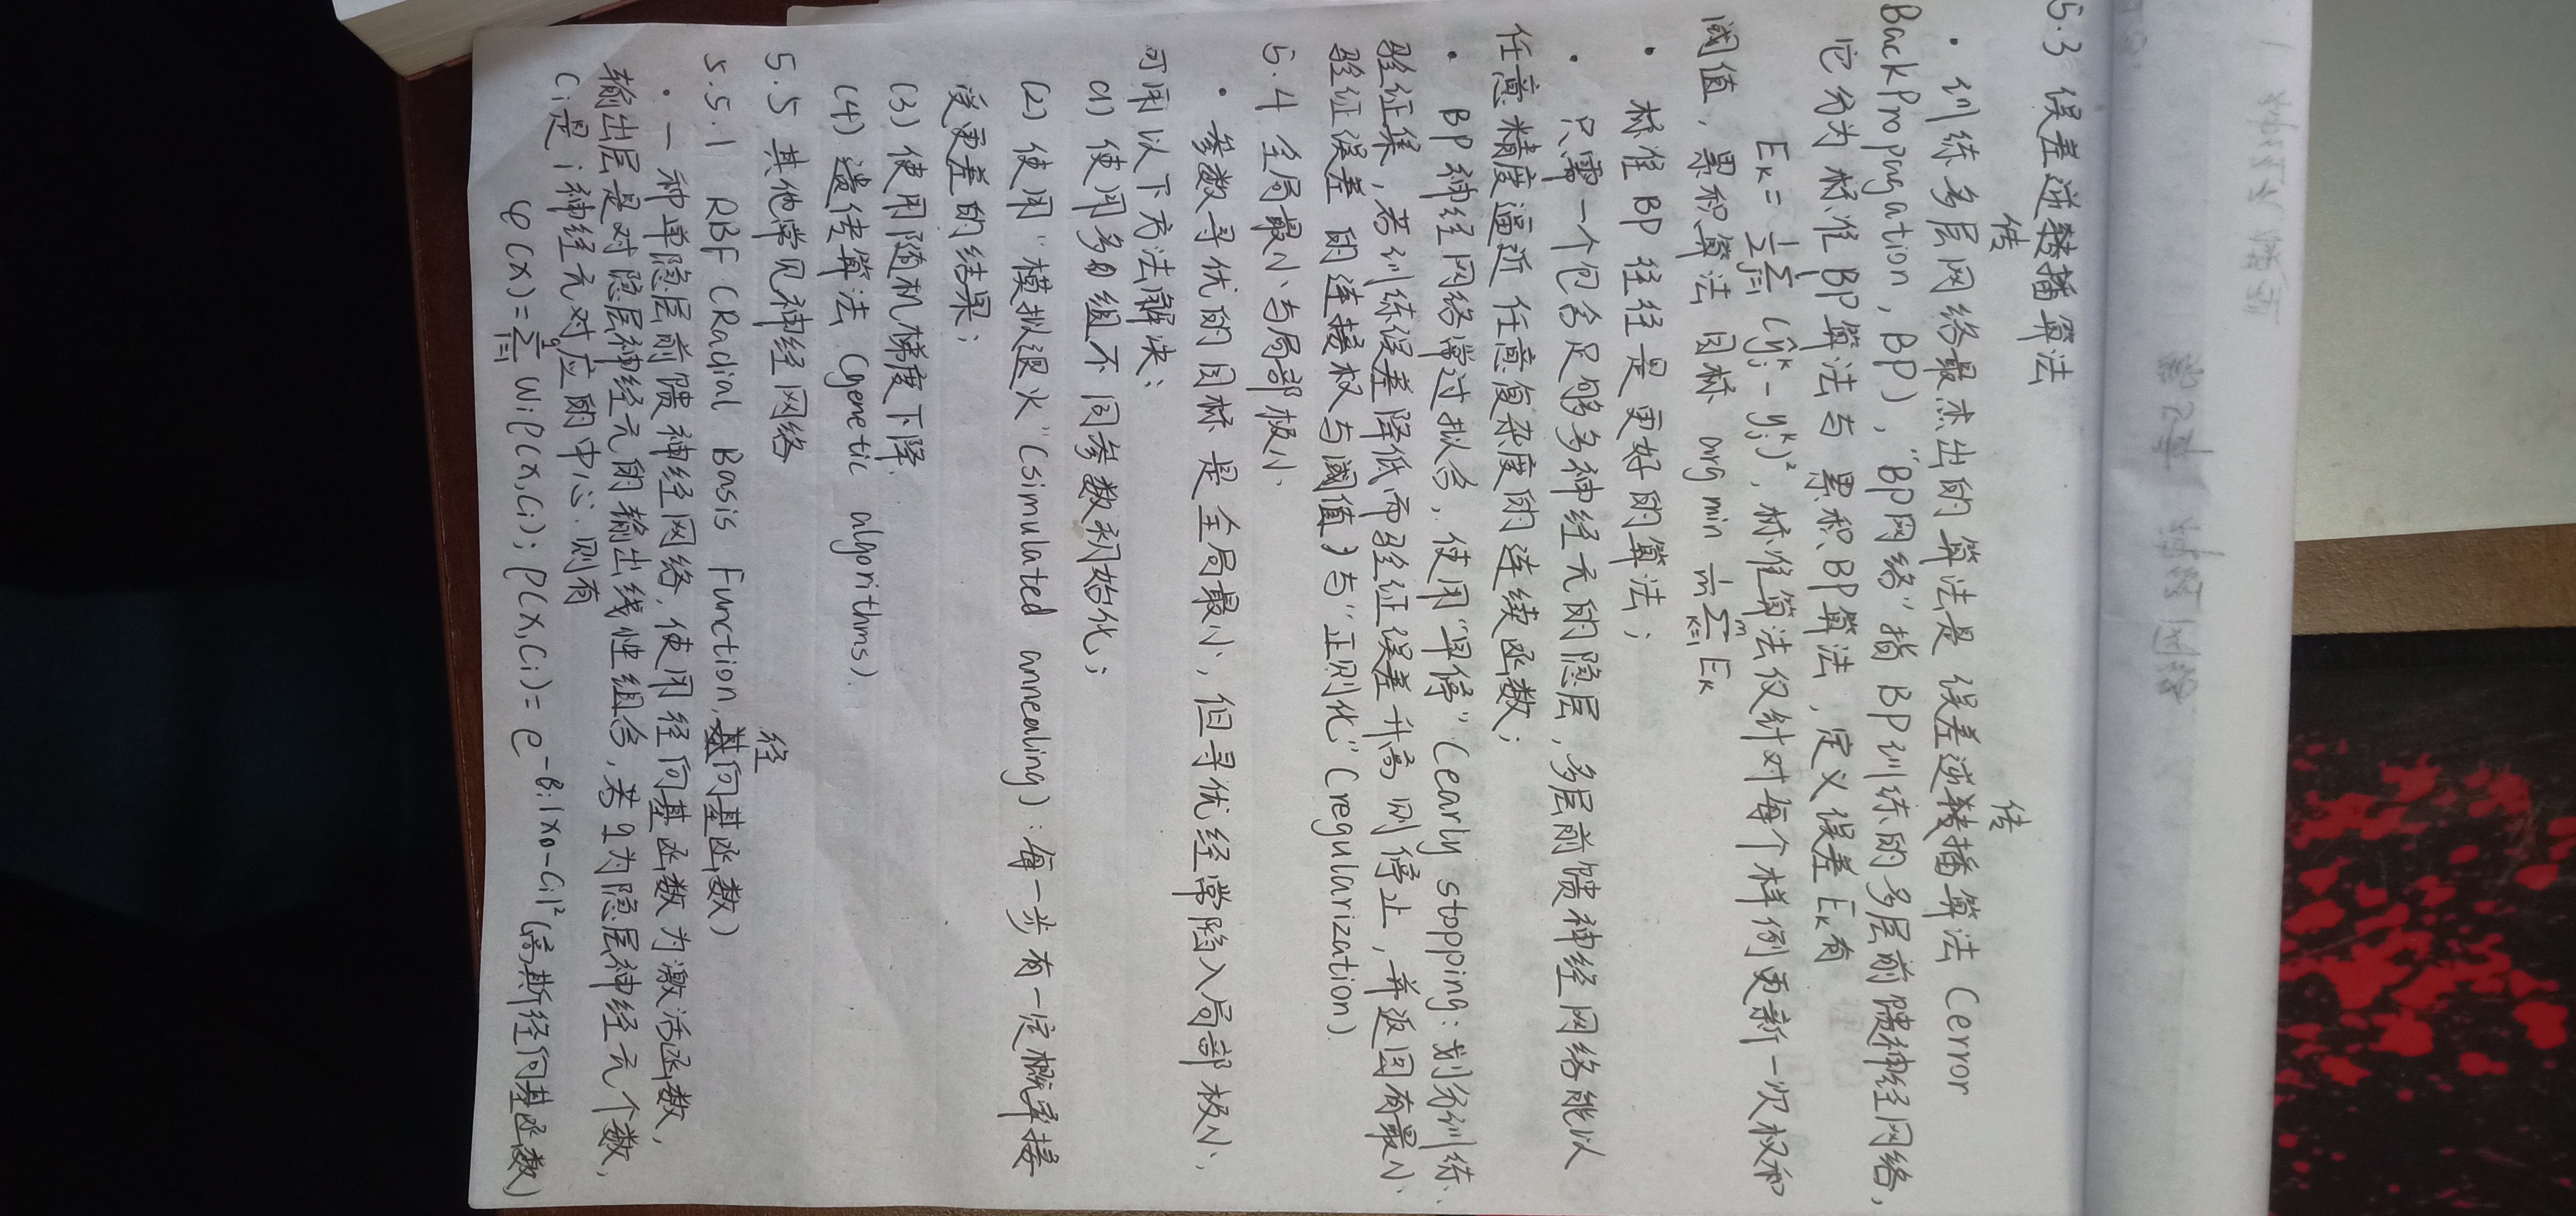 5.3 误差逆传播算法
· 训练多层网络最杰出的算法是 误差逆传播算法 (error
BackPropagation, BP), "BP网络"指 BP训练的多层前馈神经网络,
它分为标准BP算法与 累积BP算法, 定义误差 Eₖ有
Eₖ = ½ Σⱼ₌₁ˡ (ŷⱼᵏ - yⱼᵏ)², 标准算法仅针对每个样例更新一次权和
阈值, 累积算法 目标 arg min 1/m Σₖ₌₁ᵐ Eₖ
· 标准BP 往往是更好的算法;
· 只需一个包含足够多神经元的隐层, 多层前馈神经网络能以
任意精度逼近 任意复杂度的连续函数;
· BP神经网络常过拟合, 使用"早停"(early stopping: 划分训练、
验证集, 若训练误差降低而验证误差升高 则停止, 并返回有最小
验证误差 的连接权与阈值) 与"正则化"(regularization)
5.4 全局最小与局部极小
· 参数寻优的目标 是全局最小, 但寻优经常陷入局部极小,
可用以下方法解决:
(1) 使用多组不同参数初始化;
(2) 使用"模拟退火"(simulated annealing): 每一步有一定概率接
受更差的结果;
(3) 使用随机梯度下降.
(4) 遗传算法 (genetic algorithms).
5.5 其他常见神经网络
5.5.1 RBF (Radial Basis Function, 径向基函数)
· 一种单隐层前馈神经网络, 使用径向基函数为激活函数,
输出层是对隐层神经元的输出线性组合, 若q为隐层神经元个数,
Cᵢ是 i神经元对应的中心. 则有
φ(x) = Σᵢ₌₁q wᵢρ(x,cᵢ); ρ(x,cᵢ) = e^(-βᵢ|x-cᵢ|²) (高斯径向基函数)